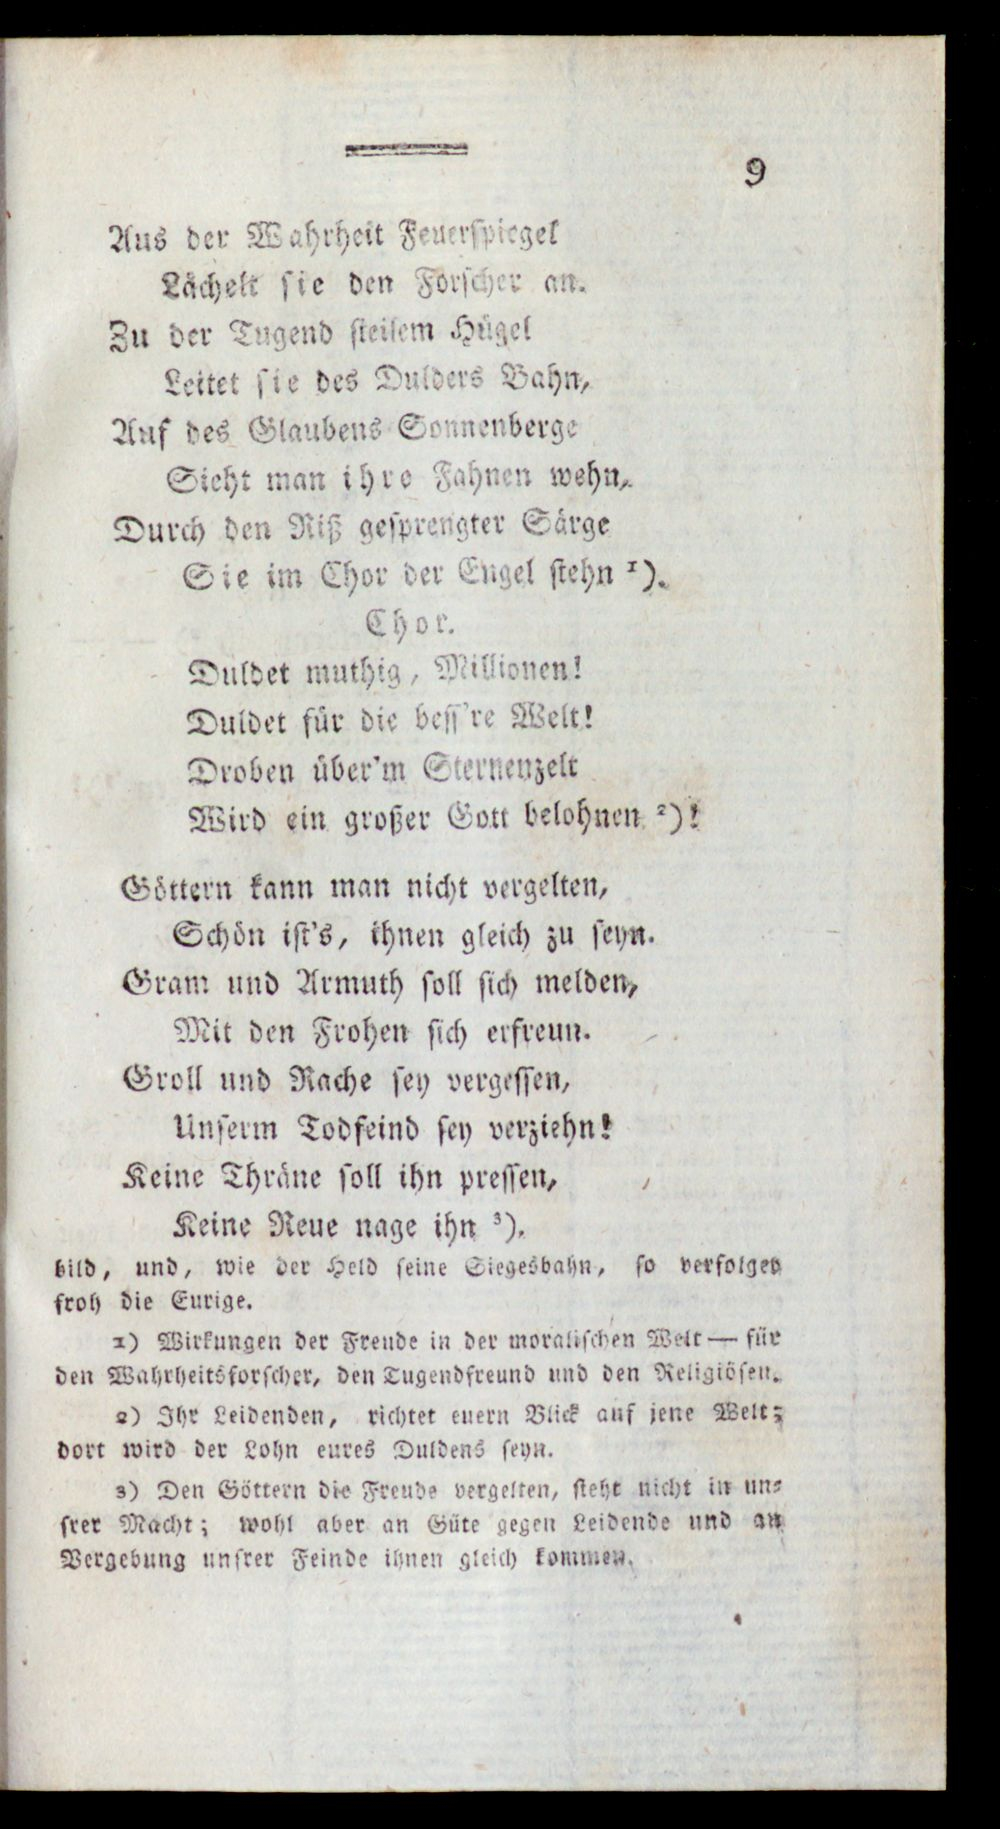 9
Aus der Wahrheit Feuerspiegel
Lächelt sie den Forscher an.
Zu der Tugend steilem Hügel
Leitet sie des Dulders Bahn,
Auf des Glaubens Sonnenberge
Sieht man ihre Fahnen wehn,
Durch den Riß gesprengter Särge
Sie im Chor der Engel stehn 1).
Chor.
Duldet muthig, Millionen!
Duldet für die bess're Welt!
Droben über'm Sternenzelt
Wird ein großer Gott belohnen 2)!
Göttern kann man nicht vergelten,
Schön ist's, ihnen gleich zu seyn.
Gram und Armuth soll sich melden,
Mit den Frohen sich erfreun.
Groll und Rache sey vergessen,
Unserm Todfeind sey verziehn!
Keine Thräne soll ihn pressen,
Keine Reue nage ihn 3).
bild, und, wie der Held seine Siegesbahn, so verfolget
froh die Eurige.
1) Wirkungen der Freude in der moralischen Welt — für
den Wahrheitsforscher, den Tugendfreund und den Religiösen.
2) Ihr Leidenden, richtet euern Blick auf jene Welt;
dort wird der Lohn eures Duldens seyn.
3) Den Göttern die Freude vergelten, steht nicht in un-
srer Macht; wohl aber an Güte gegen Leidende und an
Vergebung unsrer Feinde ihnen gleich kommen.